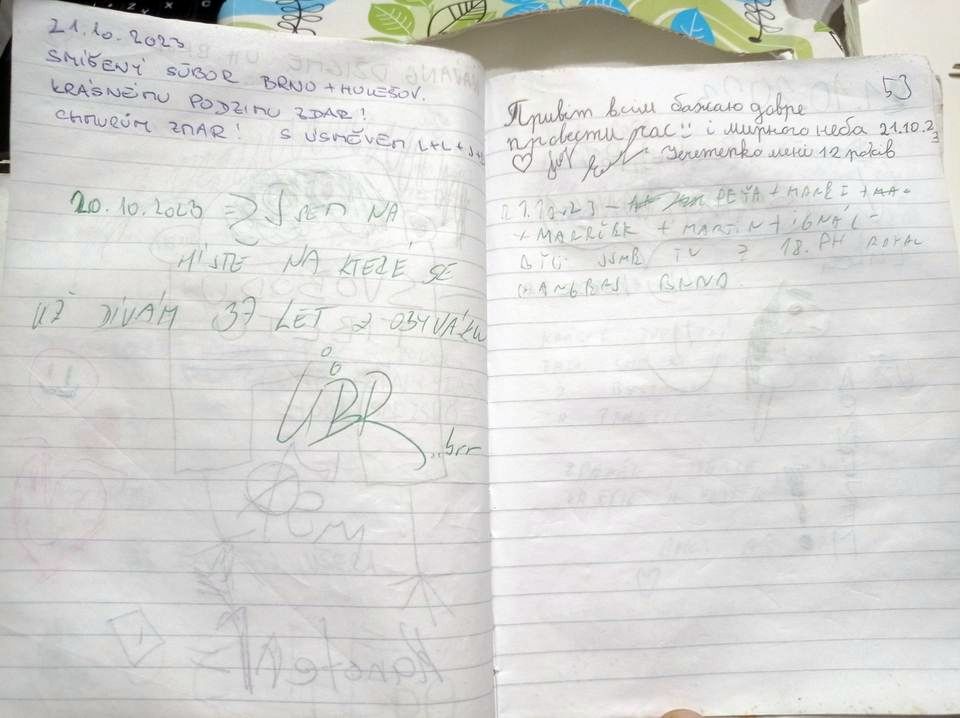 21.10.2023
SMÍŠENÝ SÚBOR BRNO + HOLEŠOV.
KRÁSNÉMU PODZIMU ZDAR!
CHMURÚM ZMAR! S ÚSMĚVEM L+L+J+
20.10.2023 => JSEM NA
MÍSTĚ NA KTERÉ SE
UŽ DÍVÁM 37 LET Z
ÜBR
...brr
53
Привіт всім бажаю давре
провести час !! і мирного неба 21.10.23
мені 12 років
21.10.23 - PEŤA + MARTI +
+ MAREČEK + MARTIN + IGNÁC -
BYLI JSME TU Z 18. PH ROYAL
RANGERS BRNO.